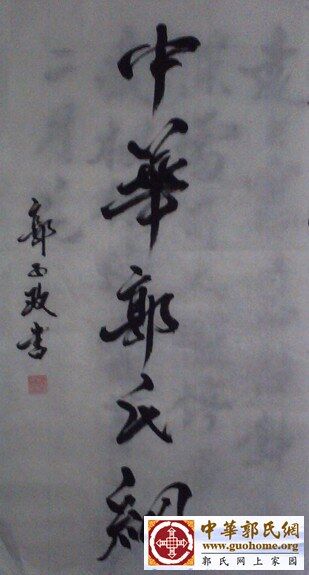 中華郭氏網
郭政書
中華郭氏網
www.guohome.org
郭氏网上家园